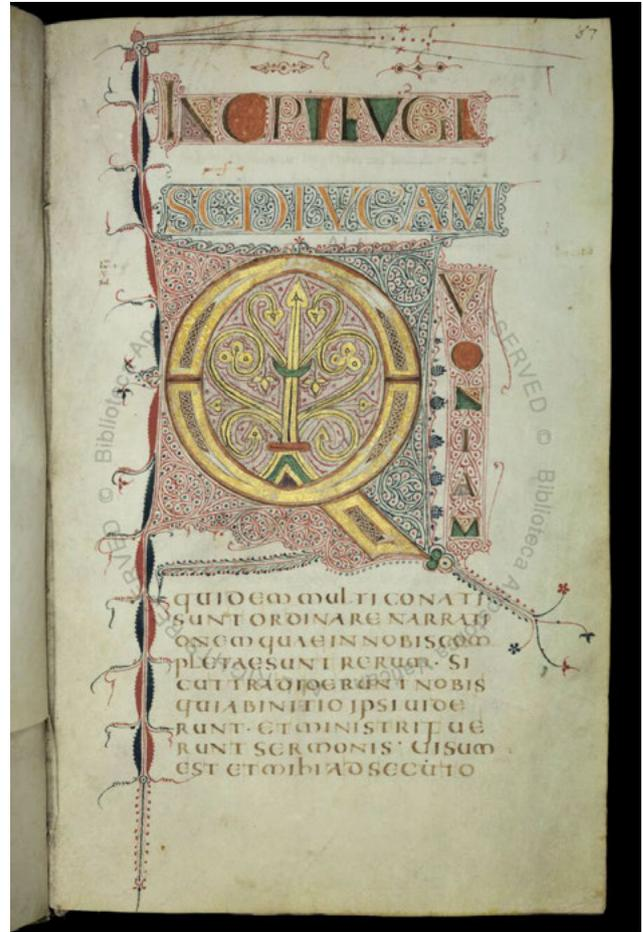 INCIPIT EVGL
SCD LVCAM
QVONIAM
quidem multi conati
sunt ordinare narrati
onem quae in nobis com
pletae sunt rerum· si
cut tradiderunt nobis
qui ab initio ipsi uide
runt· et ministri fue
runt sermonis· uisum
est et mihi adsecuto